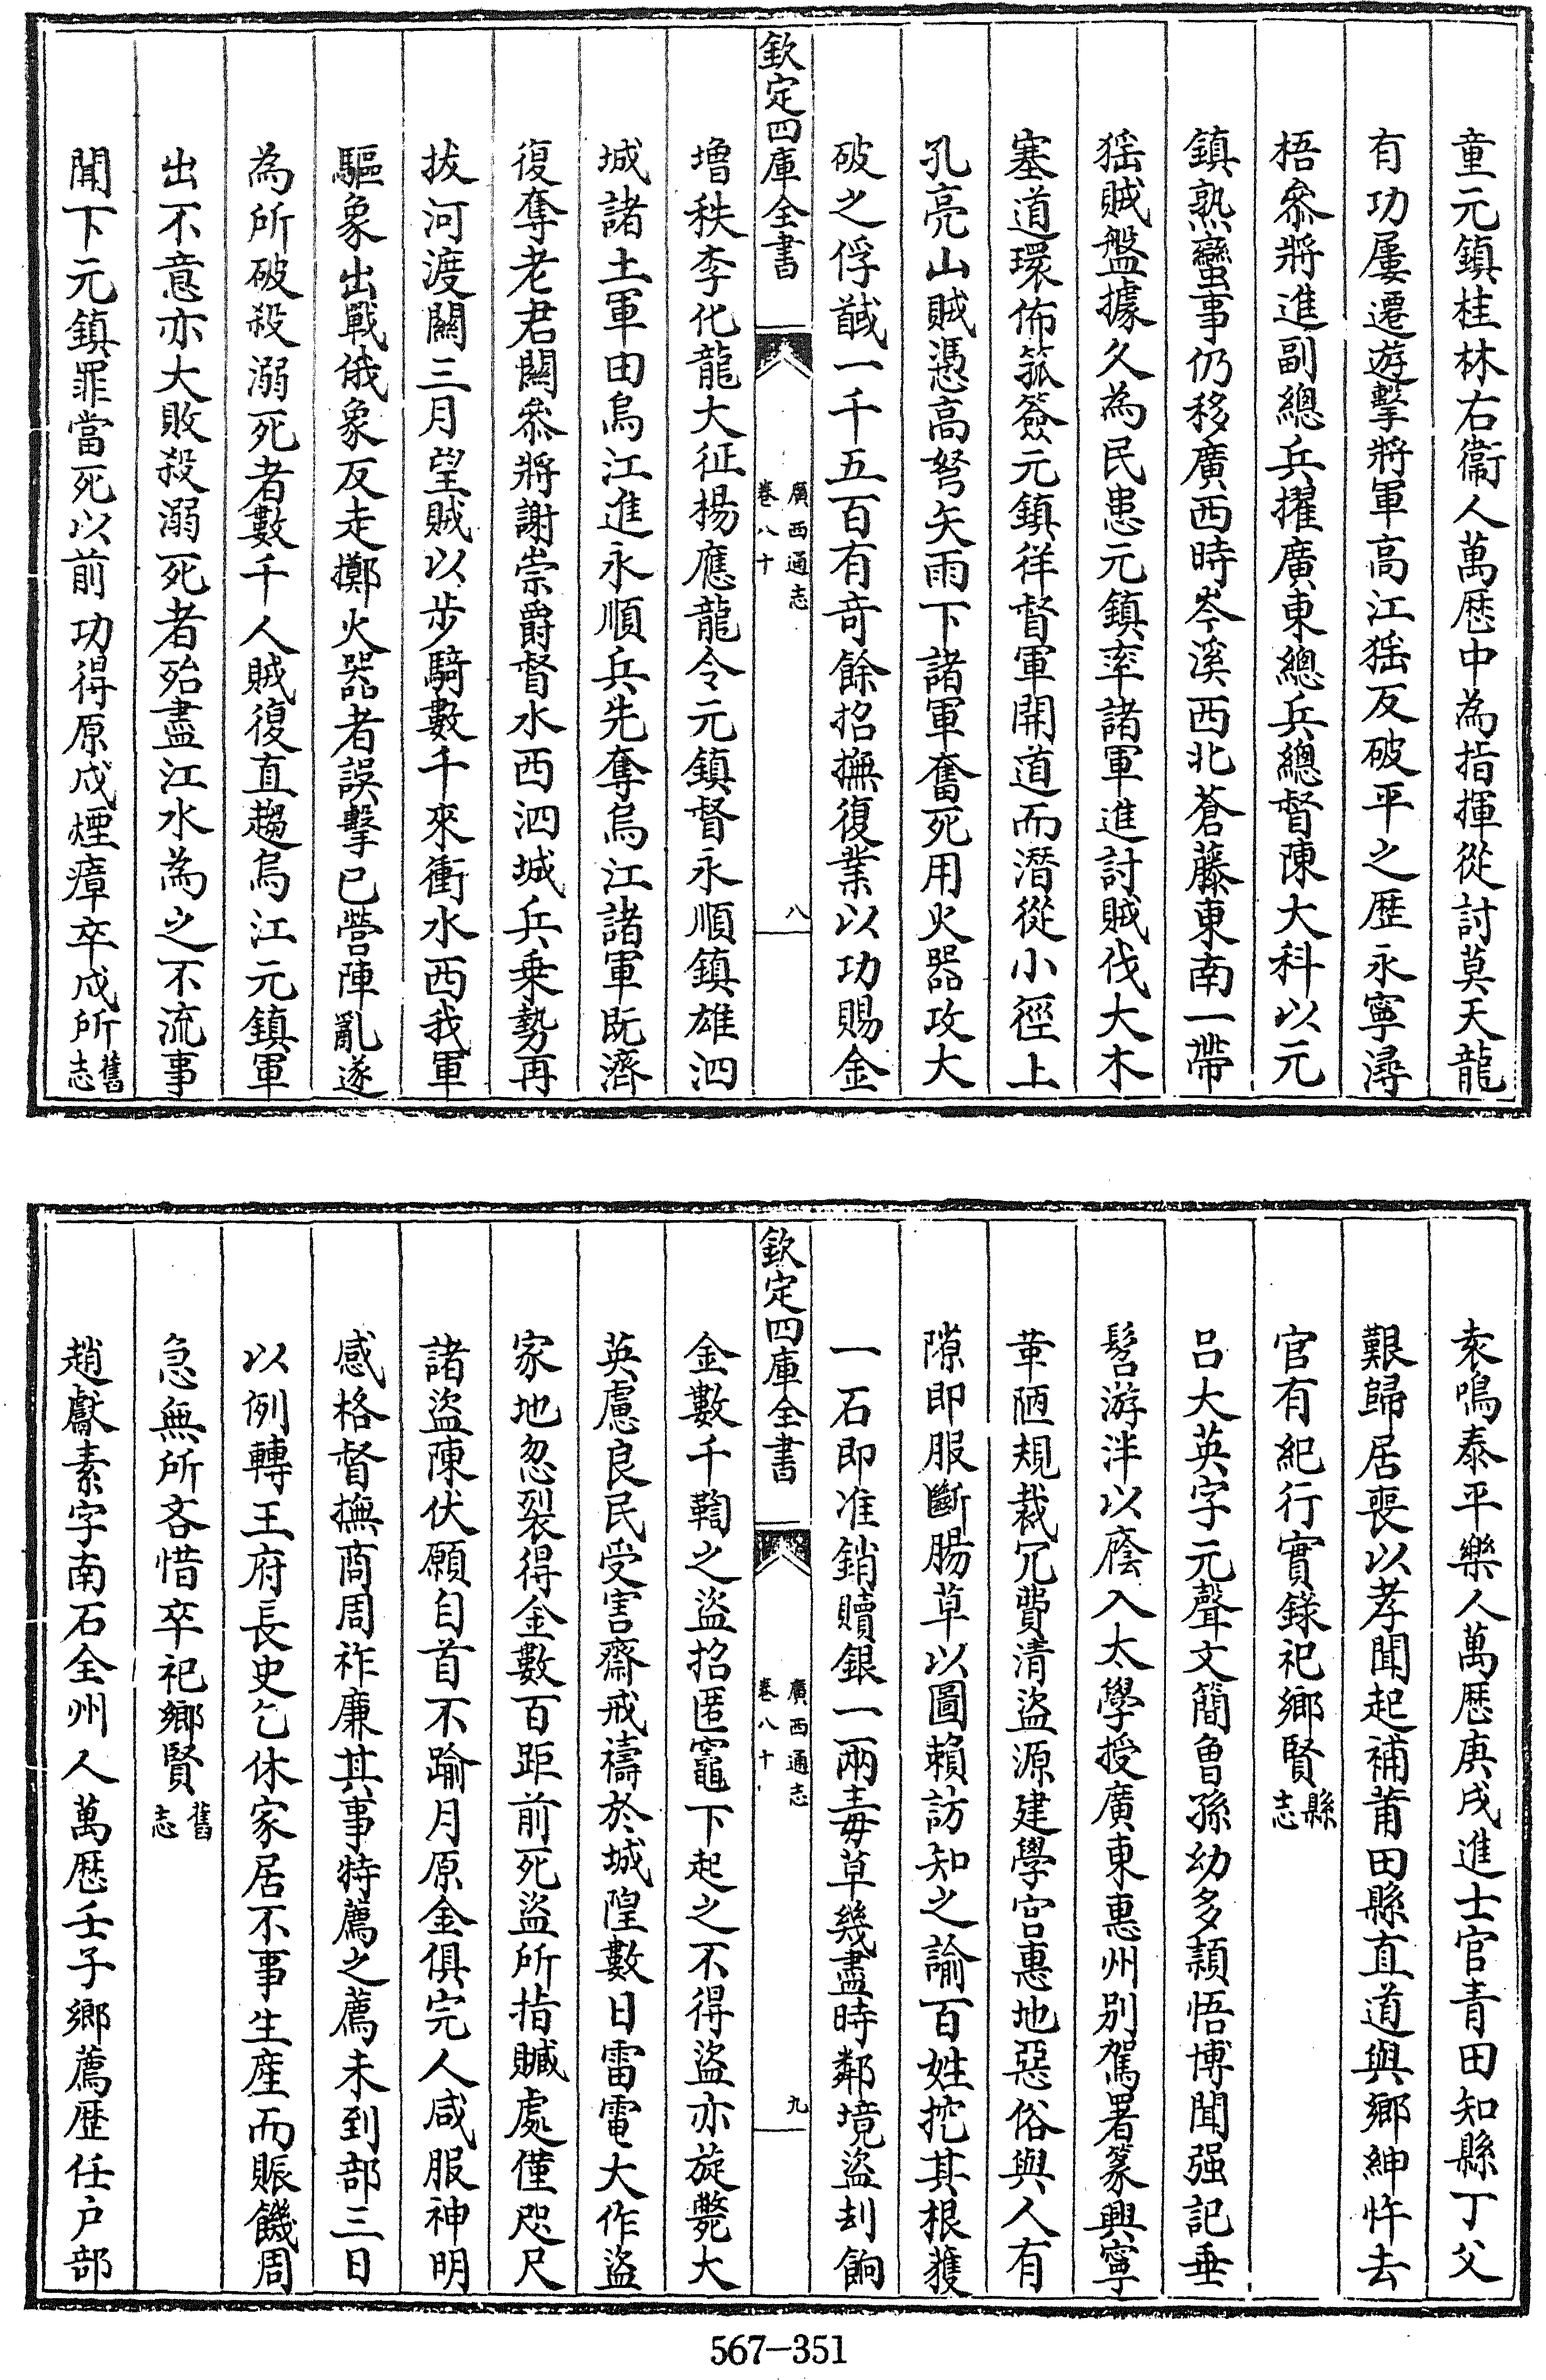 童元鎮桂林右衛人萬厯中為指揮從討莫天龍
有功屢遷遊擊將軍高江猺反破平之歴永寧潯
梧叅將進副總兵擢廣東總兵總督陳大科以元
鎮熟蠻事仍移廣西時岑溪西北蒼藤東南一帶
猺賊盤據久為民患元鎮率諸軍進討賊伐大木
塞道環佈菰簽元鎮徉督軍開道而潛從小徑上
孔亮山賊憑高弩矢雨下諸軍奮死用火器攻大
破之俘馘一千五百有奇餘招撫復業以功賜金
欽定四庫全書
廣西通志
卷八十
八
增秩李化龍大征楊應龍令元鎮督永順鎮雄泗
城諸土軍由烏江進永順兵先奪烏江諸軍既濟
復奪老君關叅將謝崇爵督水西泗城兵乗勢再
拔河渡闗三月望賊以步騎數千來衝水西我軍
驅象出戰俄象反走擲火器者誤擊已營陣亂遂
為所破殺溺死者數千人賊復直趨烏江元鎮軍
出不意亦大敗殺溺死者殆盡江水為之不流事
聞下元鎮罪當死以前功得原戍煙瘴卒戍所舊志
袁鳴泰平樂人萬厯庚戌進士官青田知縣丁父
艱歸居喪以孝聞起補莆田縣直道與鄉紳忤去
官有紀行實錄祀鄉賢縣志
吕大英字元聲文簡曾孫幼多頴悟博聞强記垂
髫游泮以廕入太學授廣東惠州别駕署篆興寧
革陋規裁冗費清盜源建學宫惠地惡俗與人有
隙即服斷腸草以圖賴訪知之諭百姓挖其根獲
一石即准銷贖銀一兩毒草幾盡時鄰境盜刦餉
欽定四庫全書
廣西通志
卷八十
九
金數千鞫之盜招匿竈下起之不得盜亦旋斃大
英慮良民受害齋戒禱於城隍數日雷電大作盜
家地忽裂得金數百距前死盜所指贓處僅咫尺
諸盜陳伏願自首不踰月原金俱完人咸服神明
感格督撫商周祚廉其事特薦之薦未到部三日
以例轉王府長史乞休家居不事生産而賑饑周
急無所吝惜卒祀鄉賢舊志
趙獻素字南石全州人萬厯壬子鄉薦歴任户部
567—351